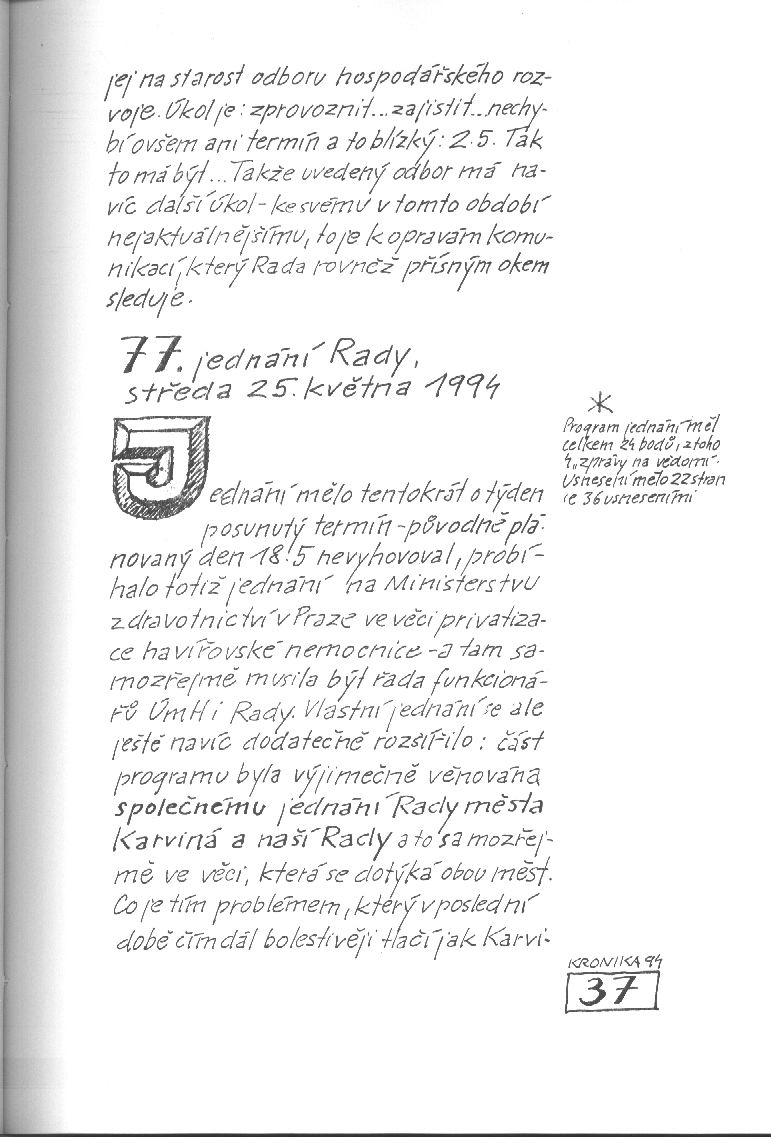 jej na starost odboru hospodářského roz-
voje. Úkol je: zprovoznit...zajistit...nechy-
bí ovšem ani termín a to blízký: 2.5. Tak
to má být...Takže uvedený odbor má na-
víc další úkol - ke svému v tomto období
nejaktuálnějšímu, to je k opravám komu-
nikací, který Rada rovněž přísným okem
sleduje.
77. jednání Rady,
středa 25. května 1994
Jednání mělo tentokrát o týden
posunutý termín - původně plá-
novaný den 18.5 nevyhovoval, probí-
halo totiž jednání na Ministerstvu
zdravotnictví v Praze ve věci privatiza-
ce havířovské nemocnice - a tam sa-
mozřejmě musila být řada funkcioná-
řů ÚmH i Rady. Vlastní jednání se ale
ještě navíc dodatečně rozšířilo: část
programu byla výjimečně věnována
společnému jednání Rady města
Karviná a naší Rady a to samozřej-
mě ve věci, která se dotýká obou měst.
Co je tím problémem, který v poslední
době čím dál bolestivěji tlačí jak Karvi-
*
Program jednání měl
celkem 24 bodů, z toho
4 „zprávy na vědomí".
Usnesení mělo 22 stran
se 36 usneseními
KRONIKA 94
37